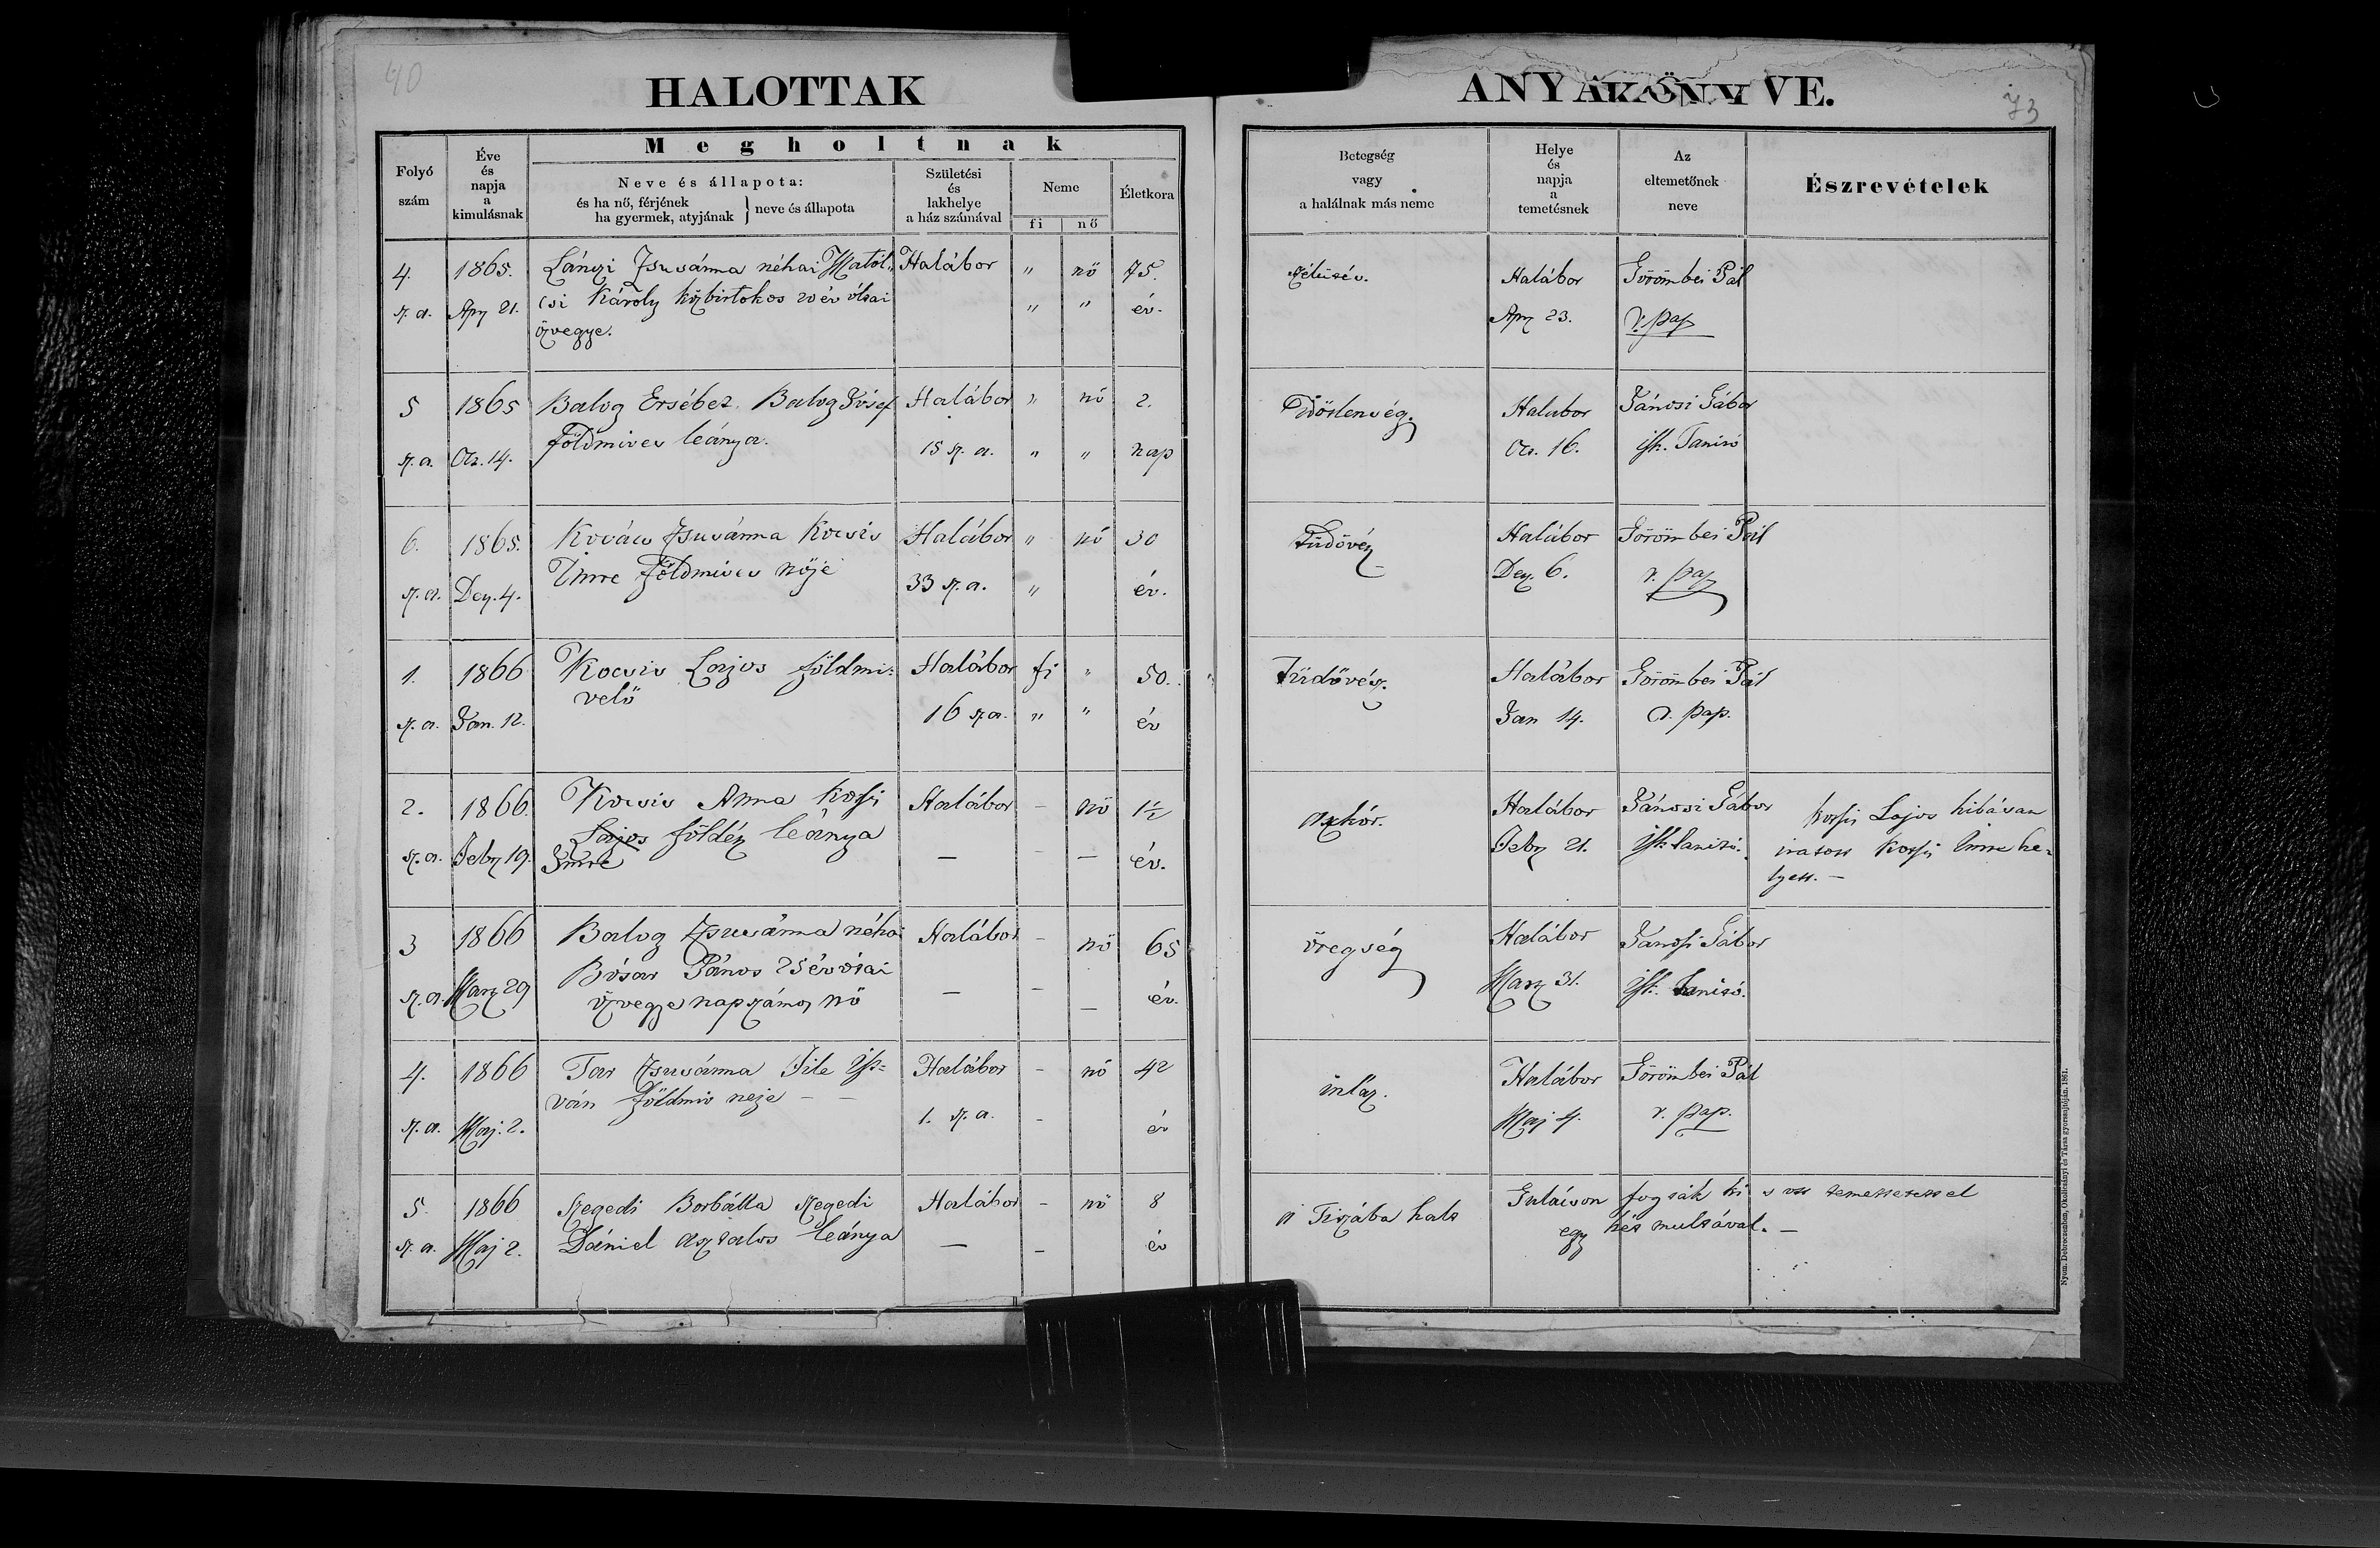 40
HALOTTAK
ANYAKÖNYVE.
73
Folyó szám
Éve és napja a kimulásnak
Megholtnak
Neve és állapota:
és ha nő, férjének
ha gyermek, atyjának } neve és állapota
Születési és lakhelye a ház számával
Neme
fi
nő
Életkora
Betegség vagy a halálnak más neme
Helye és napja a temetésnek
Az eltemetőnek neve
Észrevételek
4. 1865. Lányi Zsuzsánna néhai Matól„ Halábor " nő 75. Halábor Görömbei Pál
sz. a. Apr 21. csi Károly közbirtokos 20 év ólzai " " év. Apr 23. r. pap
özvegye.
5 1865 Balog Ersébet. Balog Jósef Halábor " nő 2. Idöslenség. Halabor Jánosi Gábor
sz. a. Oct. 14. földmives leánya. 15 sz. a. " " nap Oct. 16. isk. Tanitó
6. 1865. Kovács Zsuzsánna Kocsis Halábor " nő 30 Tüdővész Halábor Görömbei Pál
sz. a. Dez. 4. Imre földmives nője 33 sz. a. " év. Dez. 6. r. pap
1. 1866 Kocsis Lajos földmi- Halábor fi " 50. Tüdővész. Halábor Görömbei Pál
velő
sz. a. Jan. 12. 16 sz a. " " év Jan 14. r. pap.
2. 1866. Kocsis Anna Kossis Halábor - nő 1½ aszkór. Halábor Jánossi Gábor Kossis Lajos hibásan
Lajos földész leánya
sz. a. Febr 19. Imre — — év. Febr 21. isk. tanitó. iratott Kossis Imre he-
lyett. —
3 1866 Balog Zsuzsánna néhai Halábor - nő 65 öregség Halábor Jánossi Gábor
Bósár János 25 év ótai
sz. a. Marz 29 özvegye napszámos nő — - — év. Marz 31. isk. tanitó.
4. 1866 Tar Zsuzsánna File Ist- Halábor - nő 42 inláz. Halábor Görömbei Pál
ván földmiv neje — —
sz. a. Maj. 2. 1. sz. a. - év Maj 4. r. pap.
5. 1866 Szegedi Borbálla Szegedi Halábor - nő 8 a Tiszába halt Gulácson fogták ki s ott temettetett el
sz. a. Maj 2. Dániel asztalos leánya — - év egy hét multával. —
Nyom. Debreczenben, Okolicsányi és Társa gyorssajtóján. 1861.